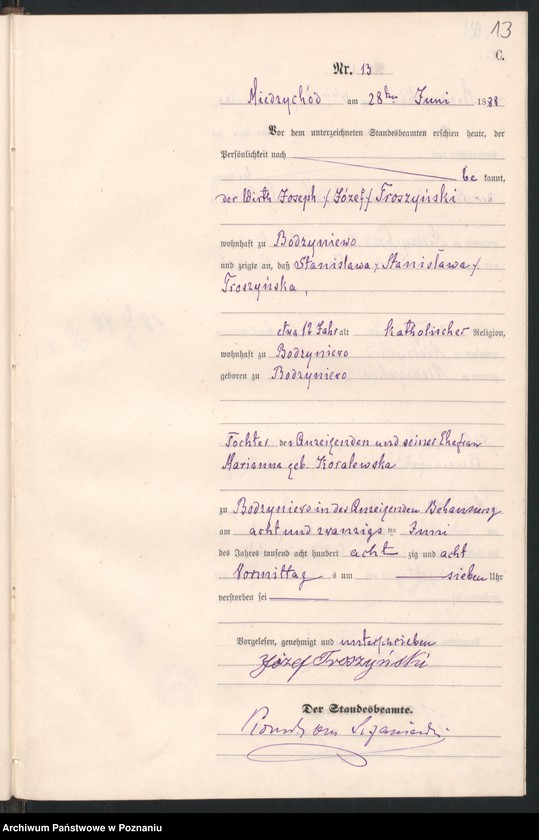 13
C.
Nr. 13
Miedzychód am 28ten Juni 1888
Vor dem unterzeichneten Standesbeamten erschien heute, der
Persönlichkeit nach
be kannt,
der Wirth Joseph /Józef/ Troszyński
wohnhaft zu Bodzyniewo
und zeigte an, daß Stanislawa /Stanisława/
Troszyńska,
etwa 12 Jahr alt katholischer Religion,
wohnhaft zu Bodzyniewo
geboren zu Bodzyniewo
Tochter des Anzeigenden und seiner Ehefrau
Marianna geb. Koralewska
zu Bodzyniewo in des Anzeigenden Behausung
am acht und zwanzigsten Juni
des Jahres tausend acht hundert acht zig und acht
Vormittag s um sieben Uhr
verstorben sei
Vorgelesen, genehmigt und unterschrieben
Józef Troszyński
Der Standesbeamte.
Archiwum Państwowe w Poznaniu